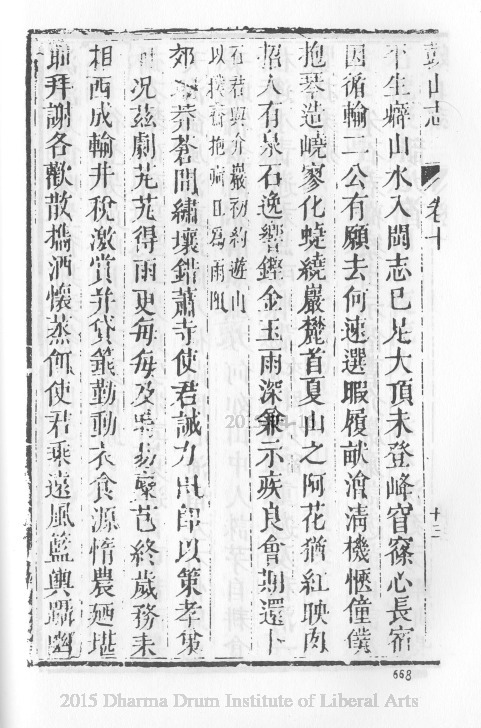 鼓山志 卷十 十三
平生癖山水入閩志已足大頂未登峰窅窱心長宿
因循輸二公有願去何速選暇履畎澮清機愜僮僕
抱琴造嶢寥化蛲繞巖麓首夏山之阿花猶紅映肉
招入有泉石逸響鏗金玉雨深兼示疾良會期還卜
石君與介巖初約遊山
以積痾抱 且為雨阻
郊 莽蒼間繡壤錯蕭寺使君誠力 卽以策孝
況茲劇芃芃得雨更每每及 易 芑終歲務未
相西成輸井稅激賞并貸 勤動衣食源惰農廼堪
前拜謝各歡散 酒懷蒸 使君乘遠風籃輿躡幽
668
20
2015 Dharma Drum Institute of Liberal Arts